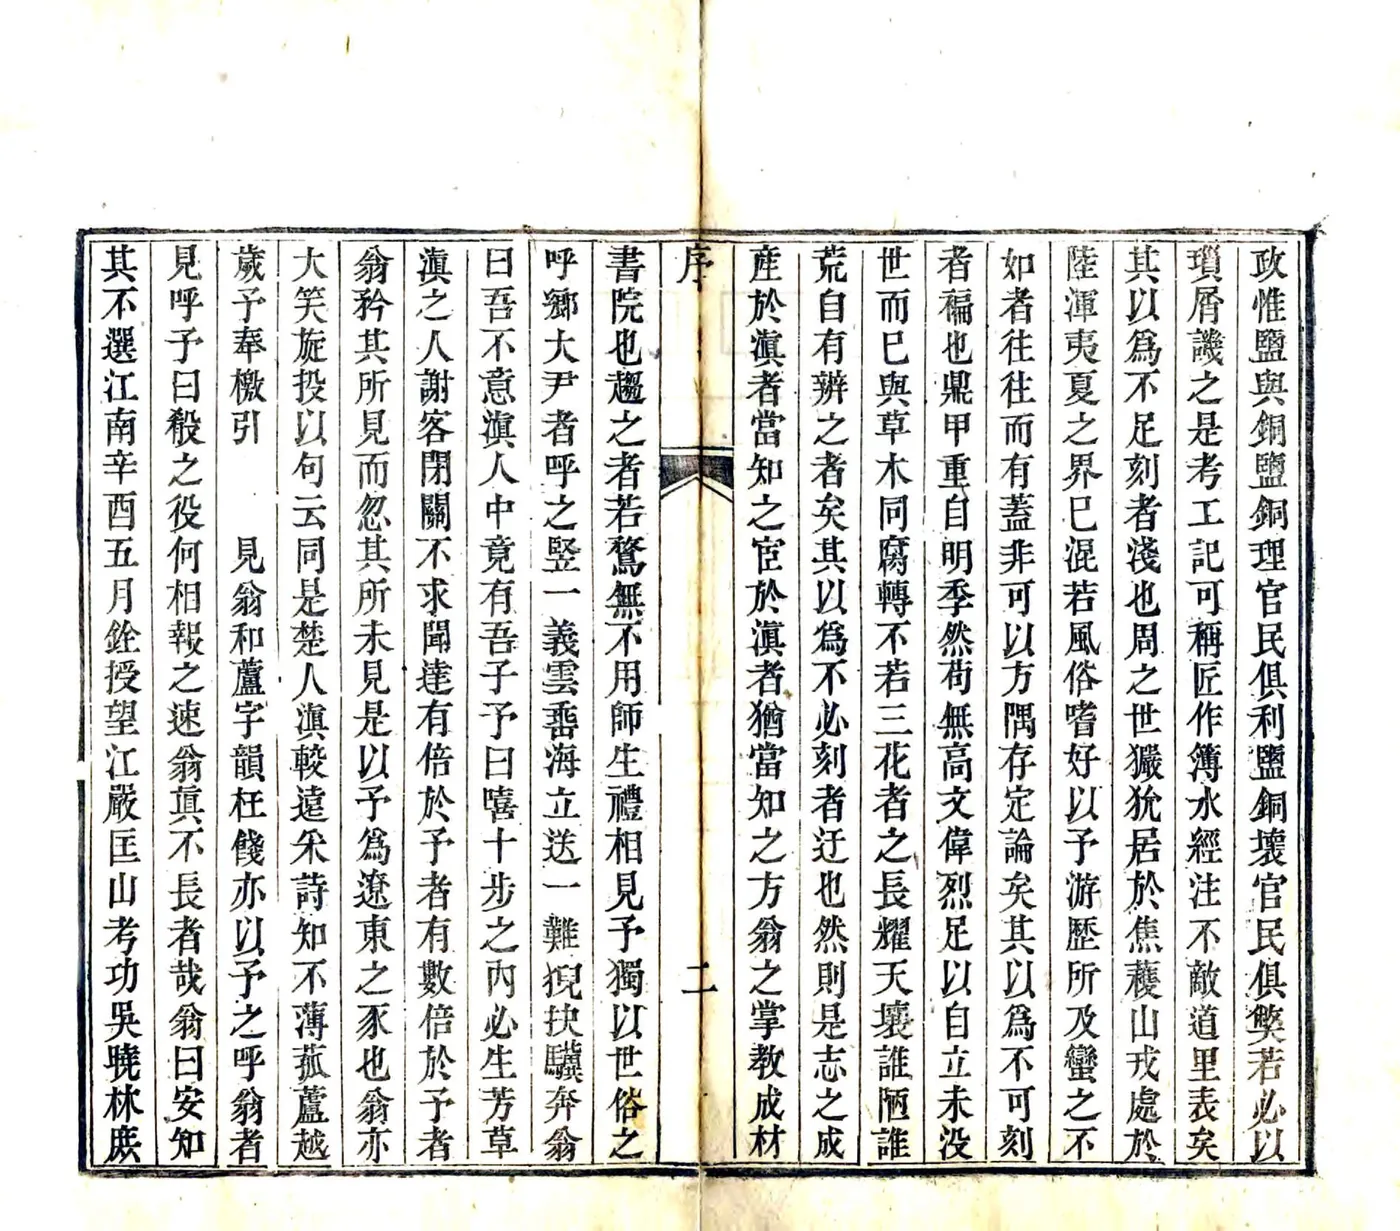 政惟鹽與銅鹽銅理官民俱利鹽銅壞官民俱獘若必以
瑣屑譏之是考工記可稱匠作簿水經注不敵道里表矣
其以爲不足刻者淺也周之世玁狁居於焦穫山戎處於
陸渾夷夏之界已混若風俗嗜好以予游歷所及蠻之不
如者往往而有蓋非可以方隅存定論矣其以爲不可刻
者褊也鼎甲重自明季然苟無高文偉烈足以自立未没
世而已與草木同腐轉不若三花者之長耀天壤誰陋誰
荒自有辨之者矣其以爲不必刻者迂也然則是志之成
產於滇者當知之宦於滇者猶當知之方翁之掌教成材
序
二
書院也趨之者若鶩無不用師生禮相見予獨以世俗之
呼鄉大尹者呼之竪一義雲垂海立送一難猊抉驥奔翁
曰吾不意滇人中竟有吾子予曰嘻十步之內必生芳草
滇之人謝客閉關不求聞達有倍於予者有數倍於予者
翁矜其所見而忽其所未見是以予爲遼東之豕也翁亦
大笑旋投以句云同是楚人滇較遠采詩知不薄菰蘆越
歲予奉檄引　　見翁和蘆字韻枉餞亦以予之呼翁者
見呼予曰殽之役何相報之速翁眞不長者哉翁曰安知
其不選江南辛酉五月銓授望江嚴匡山考功吳曉林庶